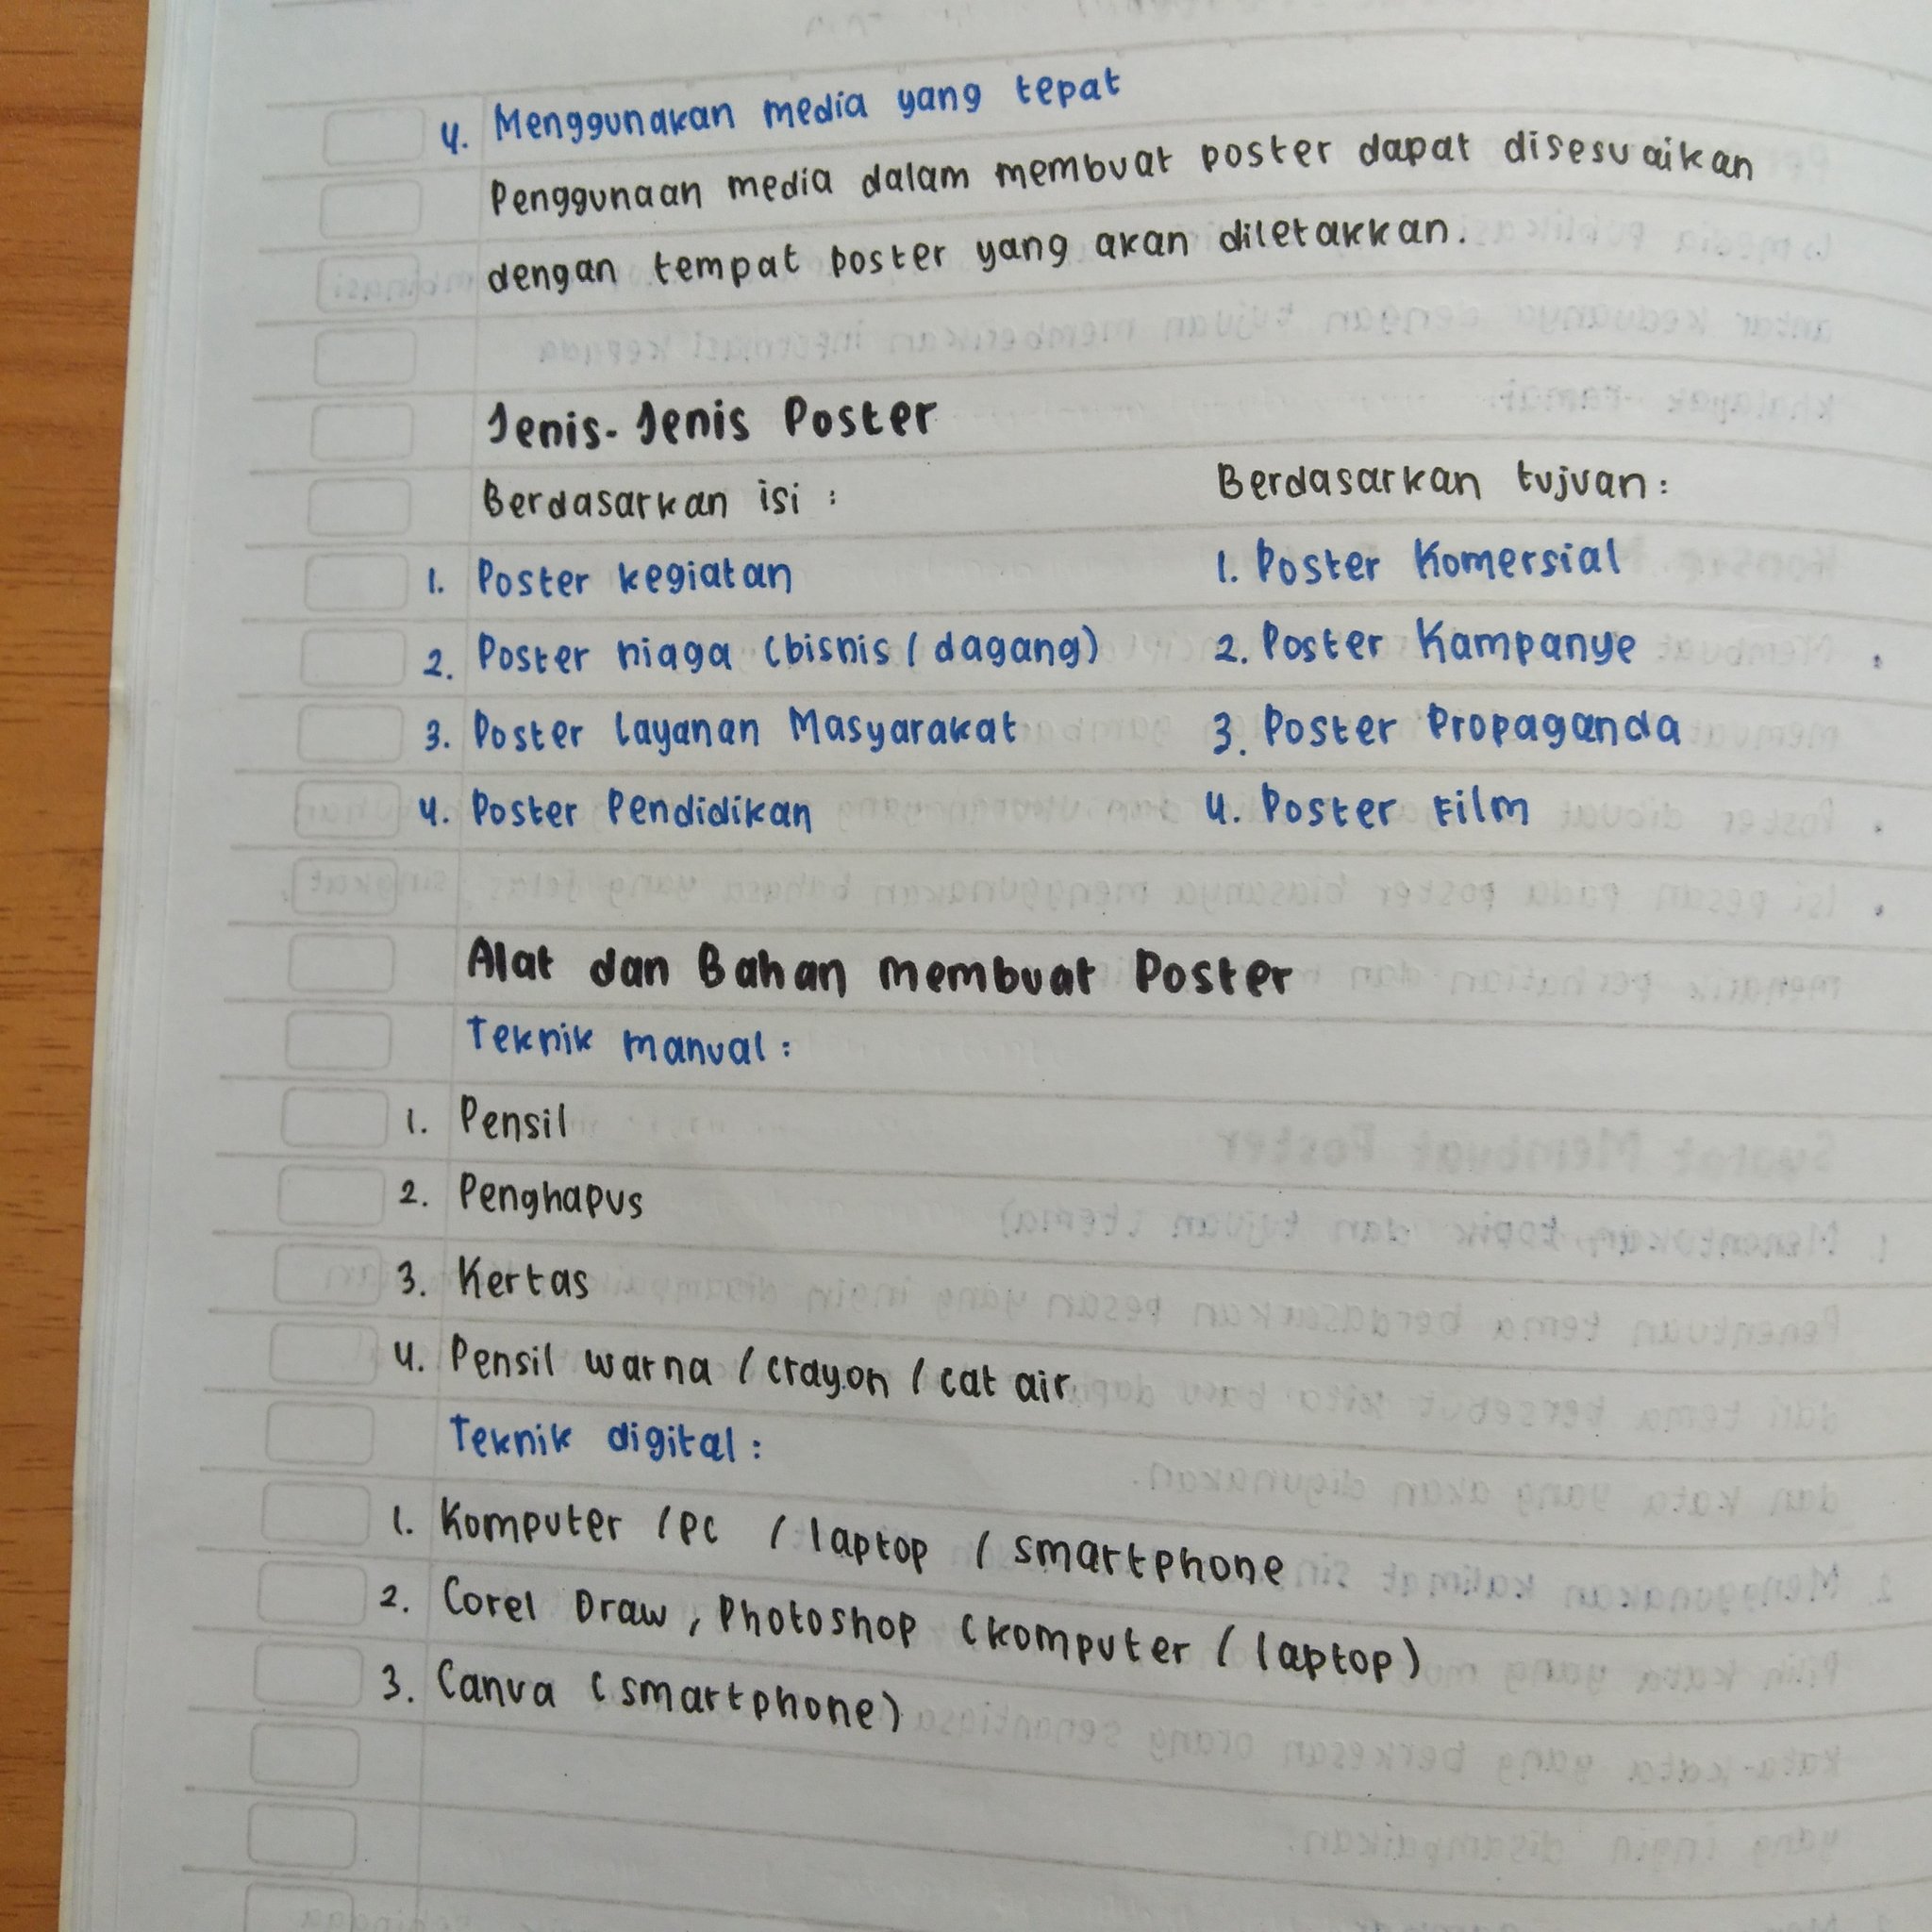 4. Menggunakan media yang tepat
Penggunaan media dalam membuat poster dapat disesuaikan
dengan tempat poster yang akan diletakkan.
Jenis-Jenis Poster
Berdasarkan isi :
1. Poster kegiatan
2. Poster niaga (bisnis / dagang)
3. Poster layanan Masyarakat
4. Poster Pendidikan
Berdasarkan tujuan :
1. Poster Komersial
2. Poster Kampanye
3. Poster Propaganda
4. Poster Film
Alat dan Bahan membuat Poster
Teknik manual :
1. Pensil
2. Penghapus
3. Kertas
4. Pensil warna / crayon / cat air
Teknik digital :
1. Komputer / PC / laptop / smartphone
2. Corel Draw, Photoshop (komputer / laptop)
3. Canva (smartphone)